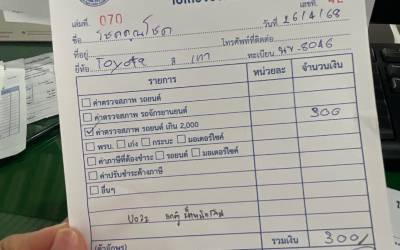 เล่มที่ 070 เลขที่
ชื่อ โชคคูณโชค วันที่ 26/4/68
ที่อยู่ โทรศัพท์ที่ติดต่อ
ยี่ห้อ Toyota สี เทา ทะเบียน -8046
รายการ หน่วยละ จำนวนเงิน
ค่าตรวจสภาพ รถยนต์
ค่าตรวจสภาพ รถจักรยานยนต์
ค่าตรวจสภาพ รถยนต์ เกิน 2,000 300
พรบ. เก๋ง กระบะ มอเตอร์ไซค์
ค่าภาษีที่ต้องชำระ รถยนต์ มอเตอร์ไซค์
ค่าปรับชำระล้างภาษี
อื่นๆ
(ตัวอักษร) รวมเงิน 300/